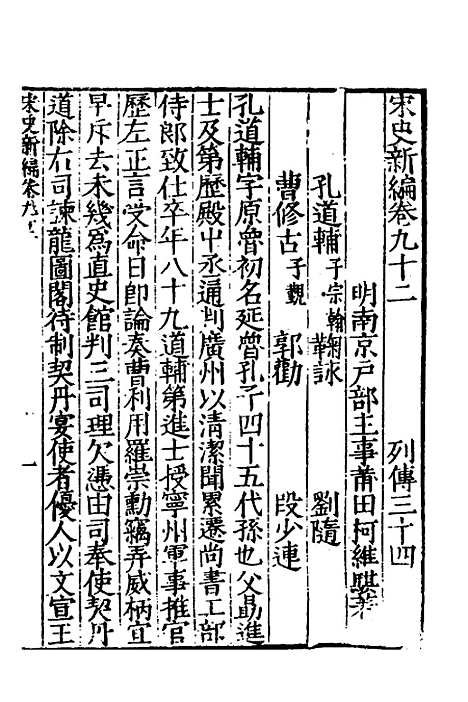 宋史新編卷九十二　列傳三十四
明南京戶部主事莆田柯維騏著
孔道輔子宗翰　鞠詠　劉隨
曹修古子覲　郭勸　段少連
孔道輔字原魯初名延魯孔子四十五代孫也父勗進
士及第歷殿中丞通判廣州以清潔聞累遷尚書工部
侍郎致仕卒年八十九道輔第進士授寧州軍事推官
歷左正言受命日卽論奏曹利用羅崇勳竊弄威柄宜
早斥去未幾爲直史館判三司理欠憑由司奉使契丹
道除右司諫龍圖閣待制契丹宴使者優人以文宣王
宋史新編卷九十二
一